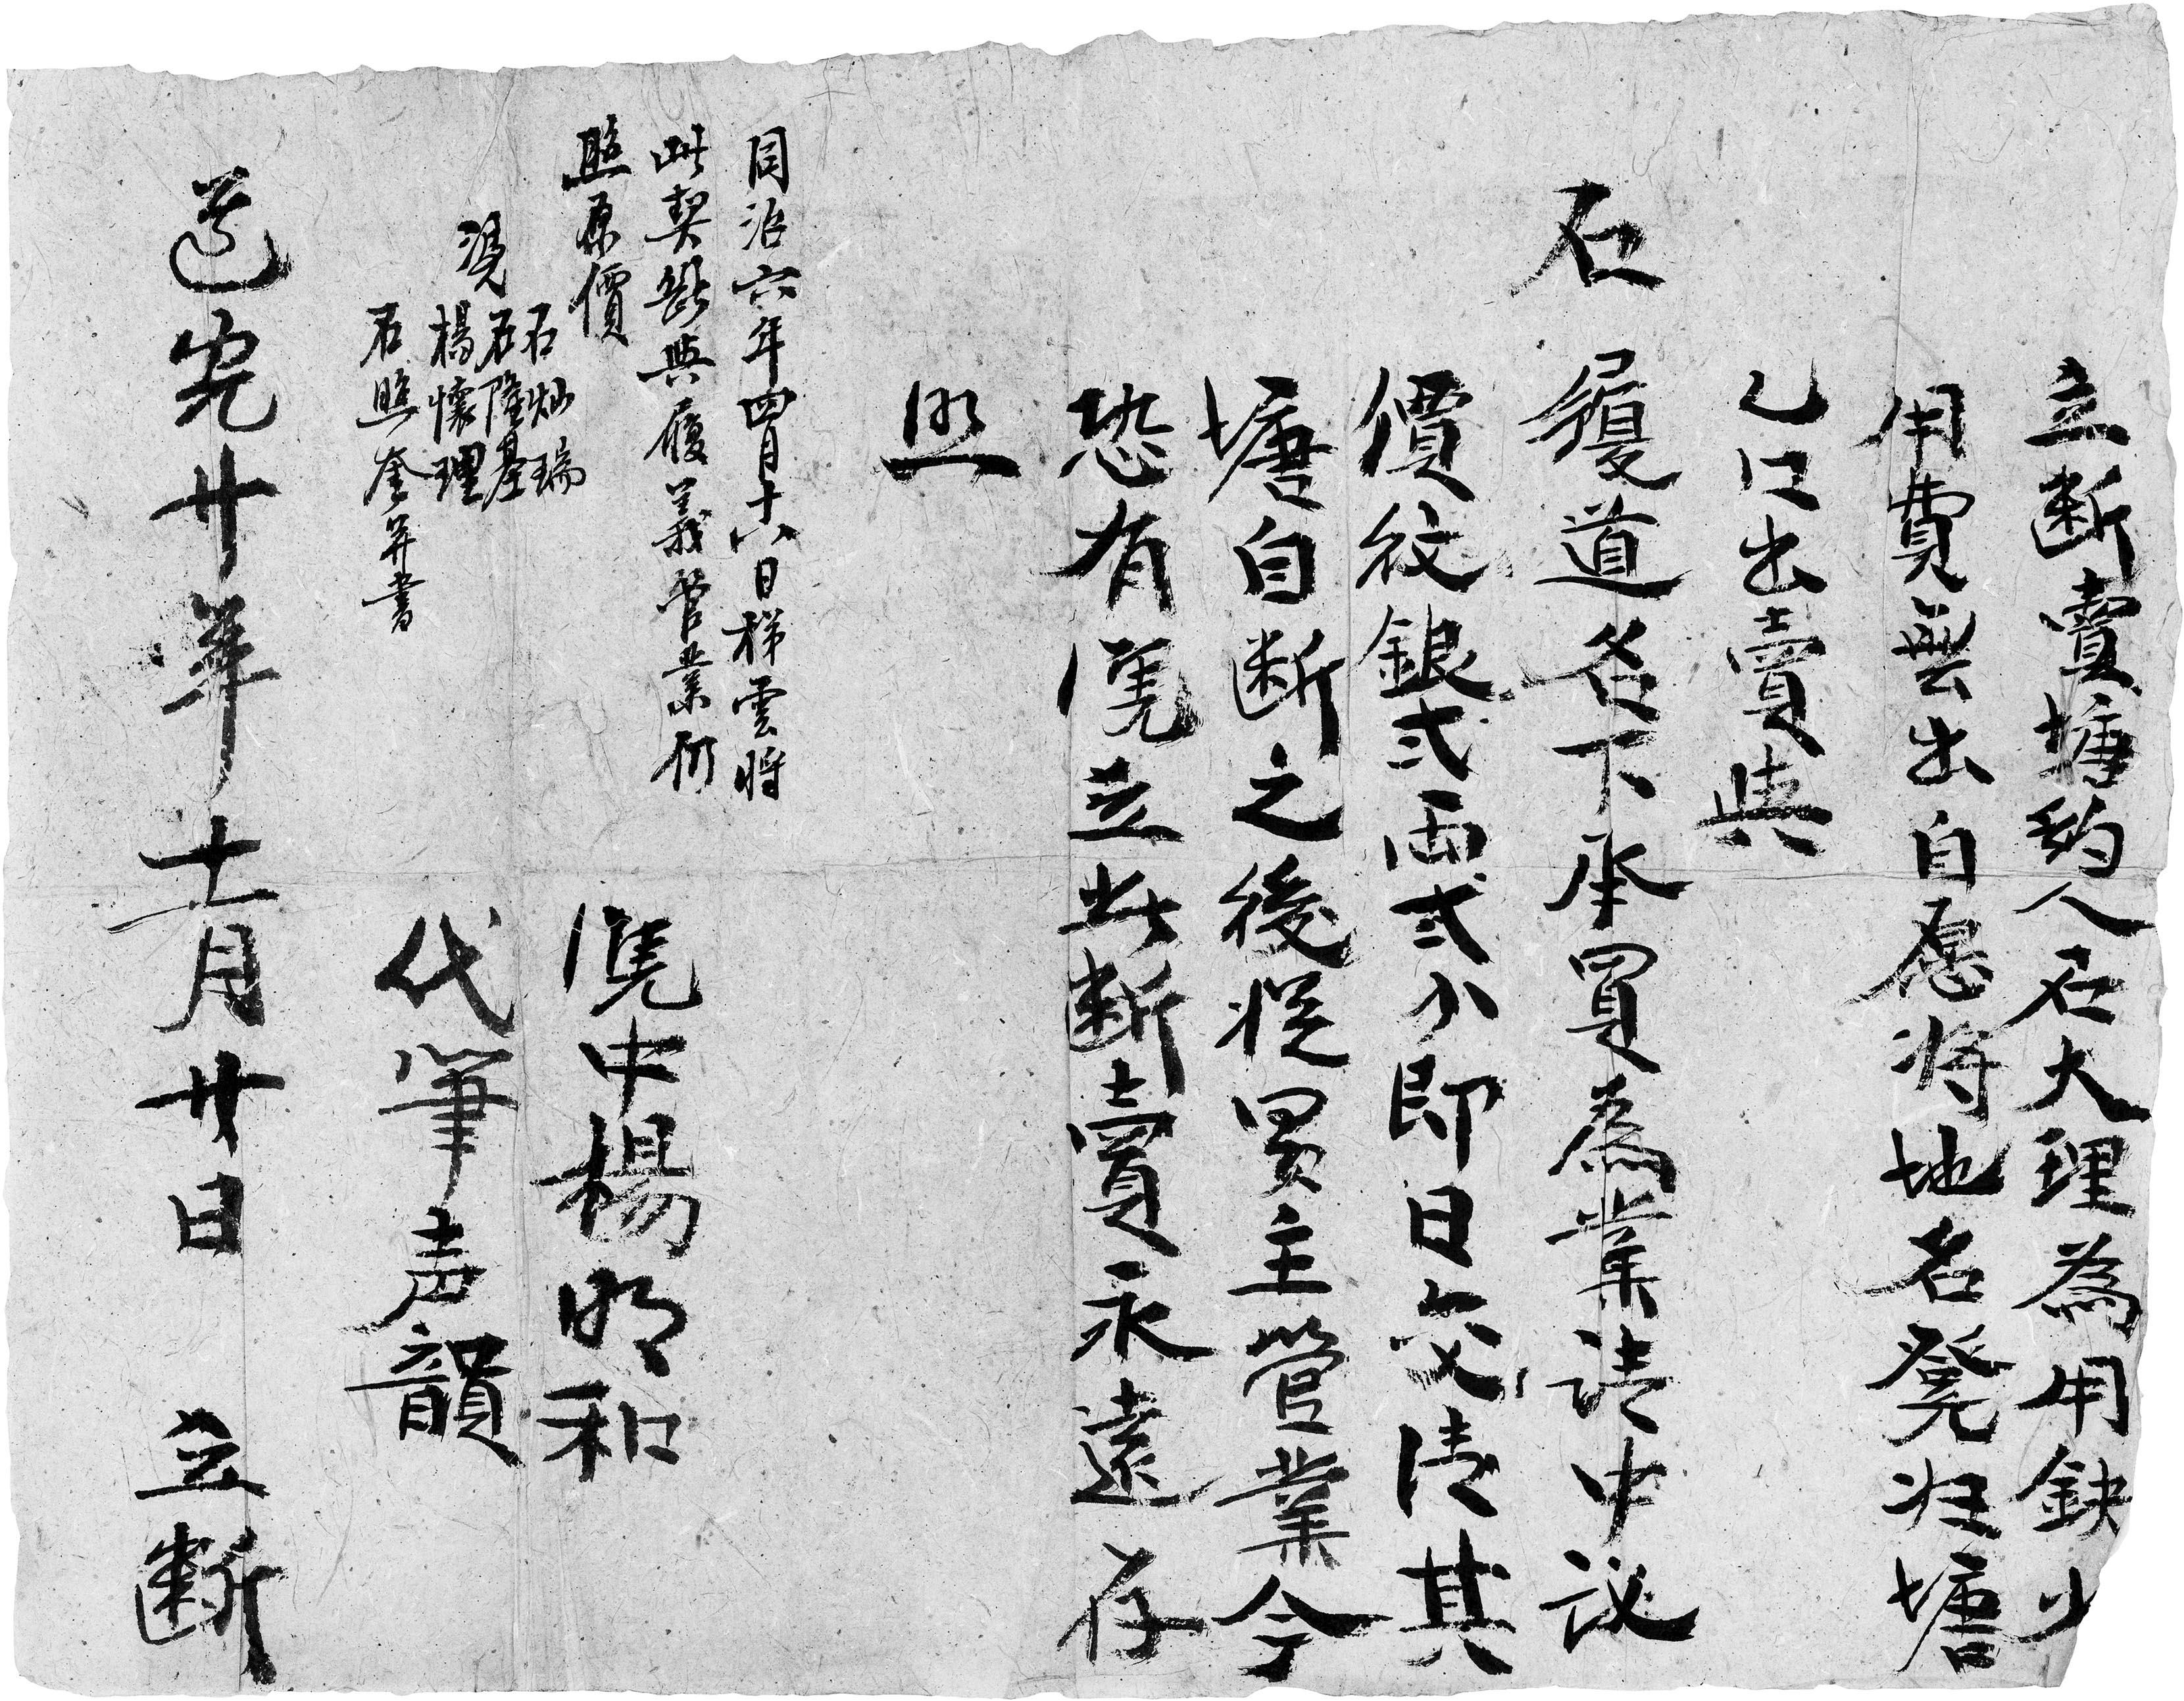 立断賣塘約人石大理為用缺少
用費無出自愿将地名凳归塘
乙口出賣與
石履道名下承買為業請中议
價紋銀弍両弍分即日交清其
塘自断之後從買主營業今
恐有凴立此断賣永遠存
照
同治六年四月十八日梯雲將
此契斷與履義管業仍
照原價
凴
石灿瑞
石隆基
楊懷理
石照奎筆書
凴中楊明和
代筆声韻
道光廿年十一月廿日 立断